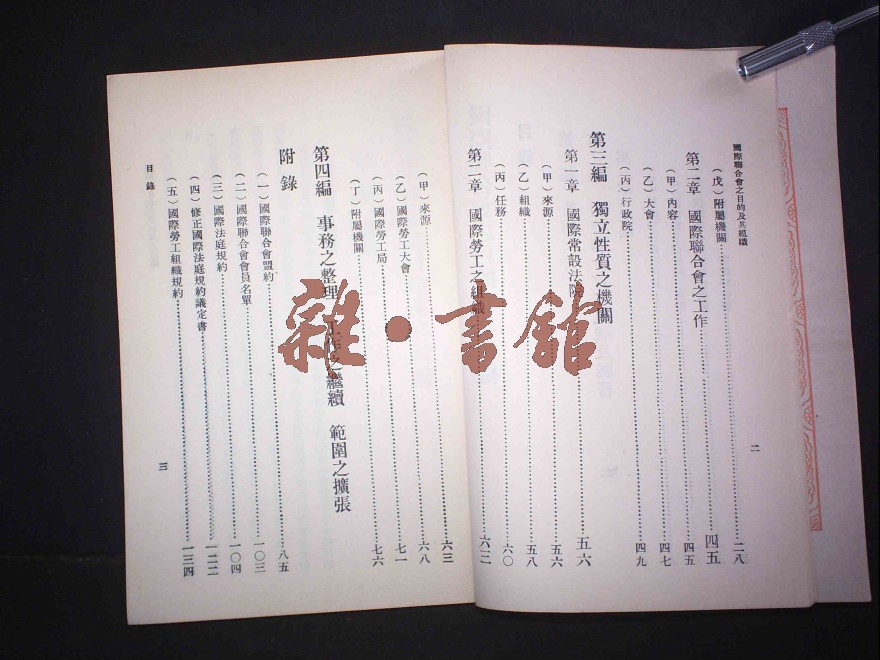 國際聯合會之目的及其組織
(戊)附屬機關……二八
第二章 國際聯合會之工作……四五
(甲)內容……四五
(乙)大會……四七
(丙)行政院……四九
第三編 獨立性質之機關
第一章 國際常設法院……五六
(甲)來源……五六
(乙)組織……五八
(丙)任務……六〇
第二章 國際勞工之組織……六三
二
(甲)來源……六三
(乙)國際勞工大會……六八
(丙)國際勞工局……七一
(丁)附屬機關……七六
第四編 事務之整理 工作之繼續 範圍之擴張
附錄
(一)國際聯合會盟約……八五
(二)國際聯合會會員名單……一〇三
(三)國際法庭規約……一〇四
(四)修正國際法庭規約議定書……一二二
(五)國際勞工組織規約……一三四
目錄
三
雜·書館